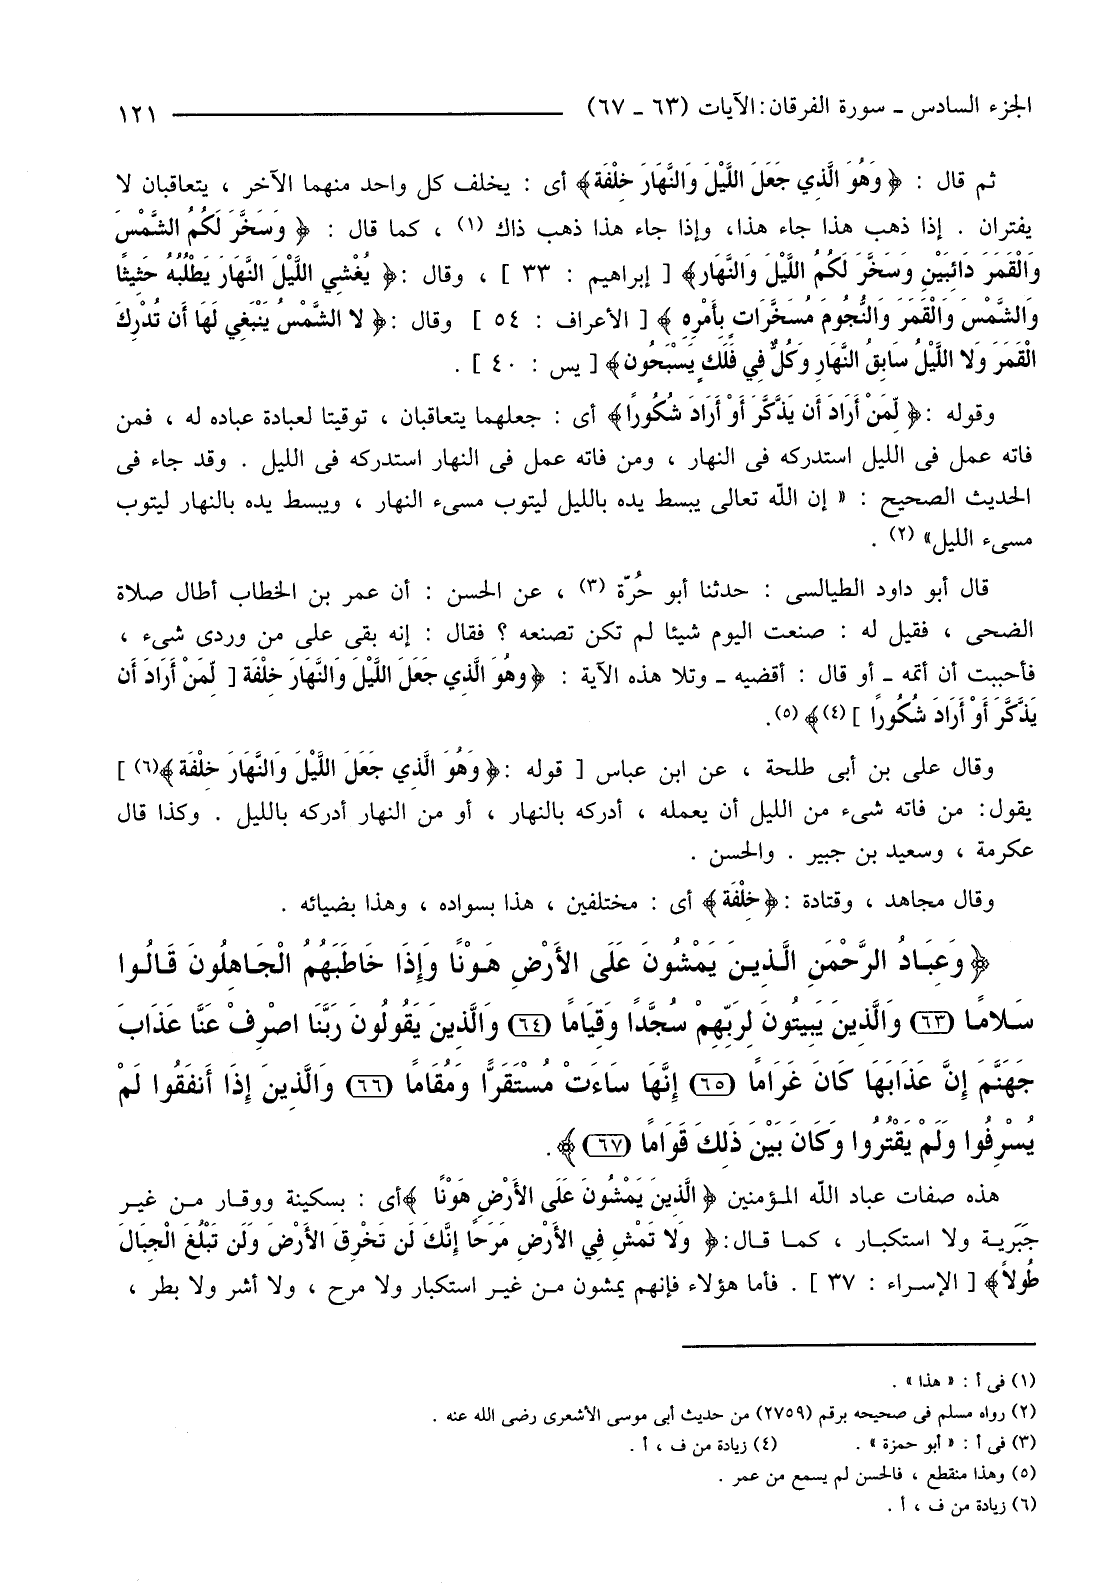 الجزء السادس ـ سورة الفرقان: الآيات (٦٣ ـ ٦٧) ١٢١
ثم قال : ﴿ وَهُوَ الَّذِي جَعَلَ اللَّيْلَ وَالنَّهَارَ خِلْفَةً﴾ أى : يخلف كل واحد منهما الآخر ، يتعاقبان لا
يفتران . إذا ذهب هذا جاء هذا، وإذا جاء هذا ذهب ذاك (١) ، كما قال : ﴿ وَسَخَّرَ لَكُمُ الشَّمْسَ
وَالْقَمَرَ دَائِبَيْنِ وَسَخَّرَ لَكُمُ اللَّيْلَ وَالنَّهَارَ﴾ [ إبراهيم : ٣٣ ] ، وقال :﴿ يُغْشِي اللَّيْلَ النَّهَارَ يَطْلُبُهُ حَثِيثًا
وَالشَّمْسَ وَالْقَمَرَ وَالنُّجُومَ مُسَخَّرَاتٍ بِأَمْرِهِ ﴾ [ الأعراف : ٥٤ ] وقال :﴿ لا الشَّمْسُ يَنْبَغِي لَهَا أَن تُدْرِكَ
الْقَمَرَ وَلا اللَّيْلُ سَابِقُ النَّهَارِ وَكُلٌّ فِي فَلَكٍ يَسْبَحُونَ﴾ [ يس : ٤٠ ] .
وقوله :﴿ لِّمَنْ أَرَادَ أَن يَذَّكَّرَ أَوْ أَرَادَ شُكُورًا﴾ أى : جعلهما يتعاقبان ، توقيتا لعبادة عباده له ، فمن
فاته عمل فى الليل استدركه فى النهار ، ومن فاته عمل فى النهار استدركه فى الليل . وقد جاء فى
الحديث الصحيح : « إن الله تعالى يبسط يده بالليل ليتوب مسىء النهار ، ويبسط يده بالنهار ليتوب
مسىء الليل» (٢) .
قال أبو داود الطيالسى : حدثنا أبو حُرّة (٣) ، عن الحسن : أن عمر بن الخطاب أطال صلاة
الضحى ، فقيل له : صنعت اليوم شيئا لم تكن تصنعه ؟ فقال : إنه بقى على من وردى شىء ،
فأحببت أن أتمه ـ أو قال : أقضيه ـ وتلا هذه الآية : ﴿وَهُوَ الَّذِي جَعَلَ اللَّيْلَ وَالنَّهَارَ خِلْفَةً [ لِّمَنْ أَرَادَ أَن
يَذَّكَّرَ أَوْ أَرَادَ شُكُورًا ] (٤)﴾ (٥).
وقال على بن أبى طلحة ، عن ابن عباس [ قوله :﴿ وَهُوَ الَّذِي جَعَلَ اللَّيْلَ وَالنَّهَارَ خِلْفَةً ﴾(٦) ]
يقول: من فاته شىء من الليل أن يعمله ، أدركه بالنهار ، أو من النهار أدركه بالليل . وكذا قال
عكرمة ، وسعيد بن جبير . والحسن .
وقال مجاهد ، وقتادة :﴿خِلْفَةً﴾ أى : مختلفين ، هذا بسواده ، وهذا بضيائه .
﴿وَعِبَادُ الرَّحْمَنِ الَّذِينَ يَمْشُونَ عَلَى الأَرْضِ هَوْنًا وَإِذَا خَاطَبَهُمُ الْجَاهِلُونَ قَالُوا
سَلامًا (٦٣) وَالَّذِينَ يَبِيتُونَ لِرَبِّهِمْ سُجَّدًا وَقِيَامًا (٦٤) وَالَّذِينَ يَقُولُونَ رَبَّنَا اصْرِفْ عَنَّا عَذَابَ
جَهَنَّمَ إِنَّ عَذَابَهَا كَانَ غَرَامًا (٦٥) إِنَّهَا سَاءَتْ مُسْتَقَرًّا وَمُقَامًا (٦٦) وَالَّذِينَ إِذَا أَنفَقُوا لَمْ
يُسْرِفُوا وَلَمْ يَقْتُرُوا وَكَانَ بَيْنَ ذَلِكَ قَوَامًا (٦٧)﴾.
هذه صفات عباد الله المؤمنين ﴿ الَّذِينَ يَمْشُونَ عَلَى الأَرْضِ هَوْنًا ﴾أى : بسكينة ووقار من غير
جَبَرية ولا استكبار ، كما قال:﴿ وَلا تَمْشِ فِي الأَرْضِ مَرَحًا إِنَّكَ لَن تَخْرِقَ الأَرْضَ وَلَن تَبْلُغَ الْجِبَالَ
طُولاً﴾ [ الإسراء : ٣٧ ] . فأما هؤلاء فإنهم يمشون من غير استكبار ولا مرح ، ولا أشر ولا بطر ،
(١) فى أ : « هذا » .
(٢) رواه مسلم فى صحيحه برقم (٢٧٥٩) من حديث أبى موسى الأشعرى رضى الله عنه .
(٣) فى أ : « أبو حمزة » . (٤) زيادة من ف ، أ .
(٥) وهذا منقطع ، فالحسن لم يسمع من عمر .
(٦) زيادة من ف ، أ .